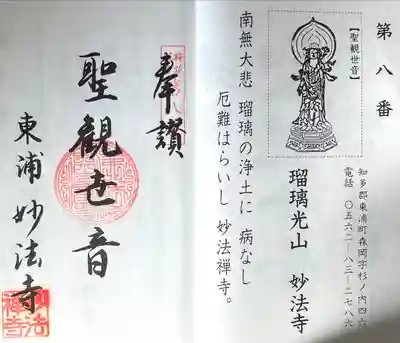 第八番
【聖観世音】
知多郡東浦町森岡字杉ノ内四六
電話 〇五六二―八三―二七八六
瑠璃光山 妙法寺
南無大悲 瑠璃の浄土に 病なし
厄難はらいし 妙法禅寺。
奉讃
聖観世音
東浦妙法寺
妙法禅寺